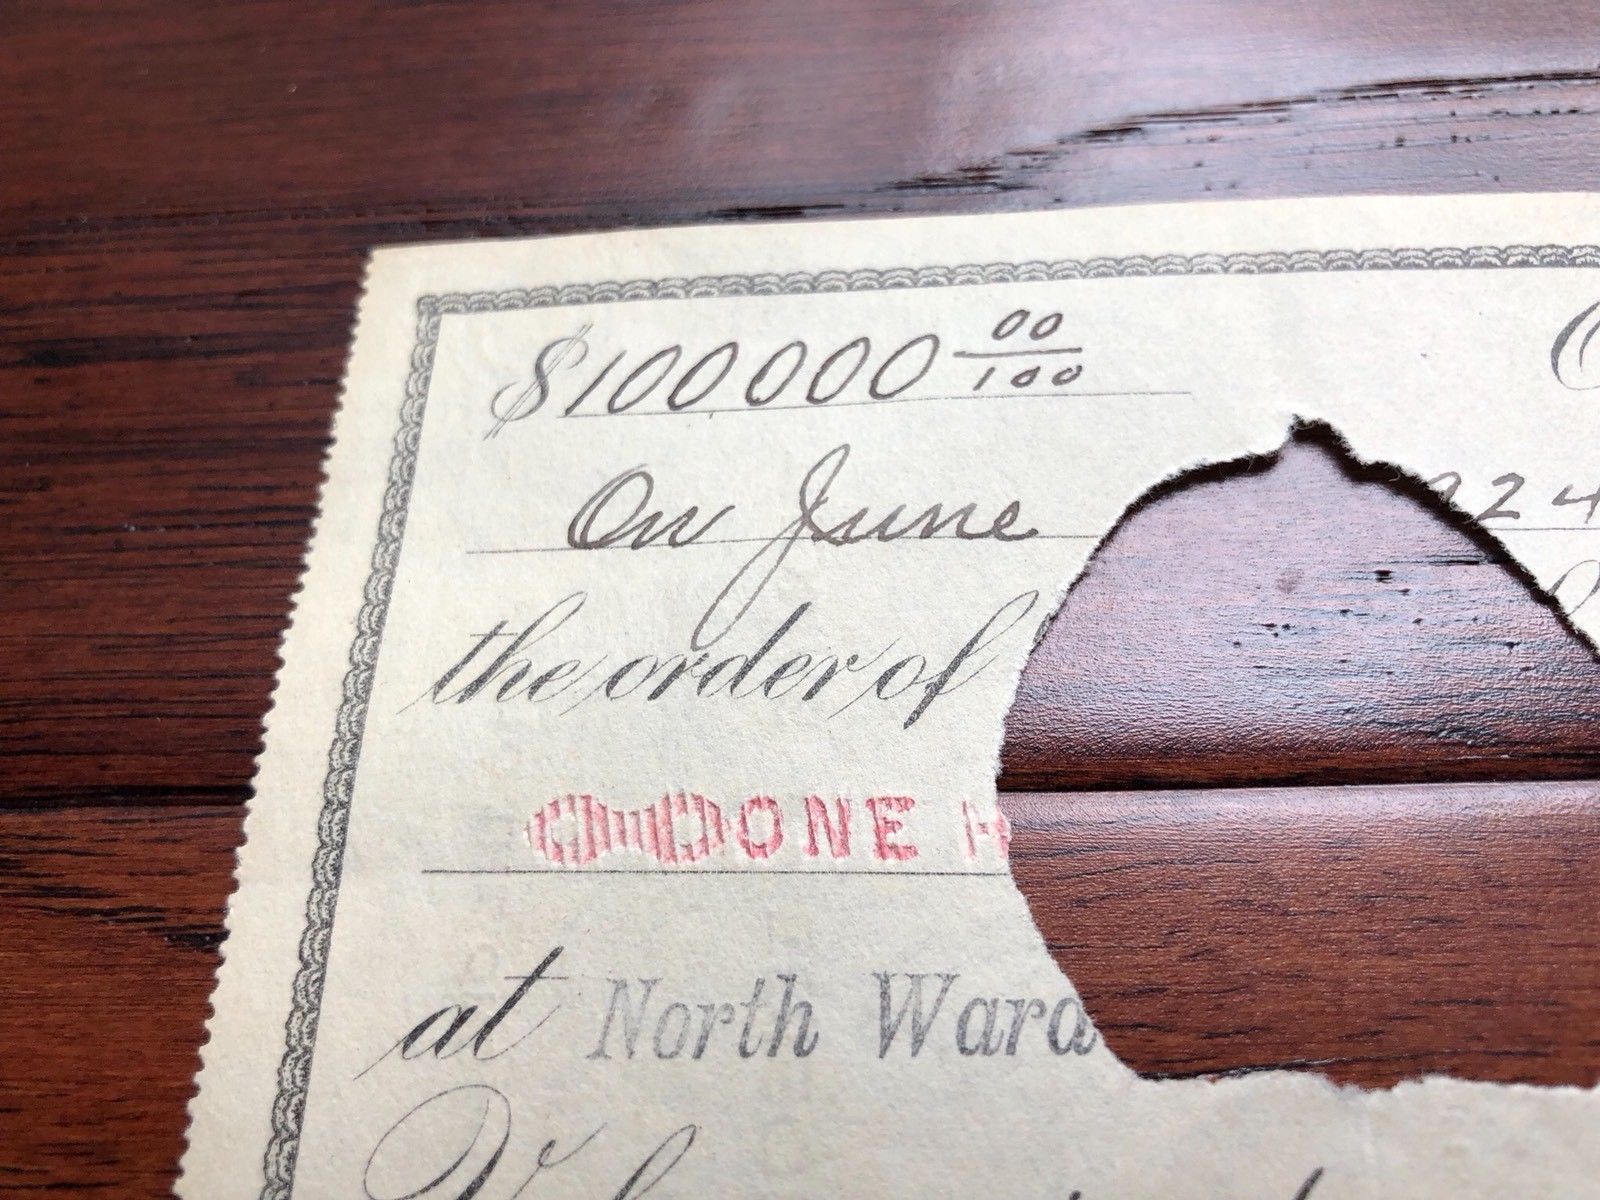 $100000 00/100
On June 924
the order of
ONE H
at North Ward